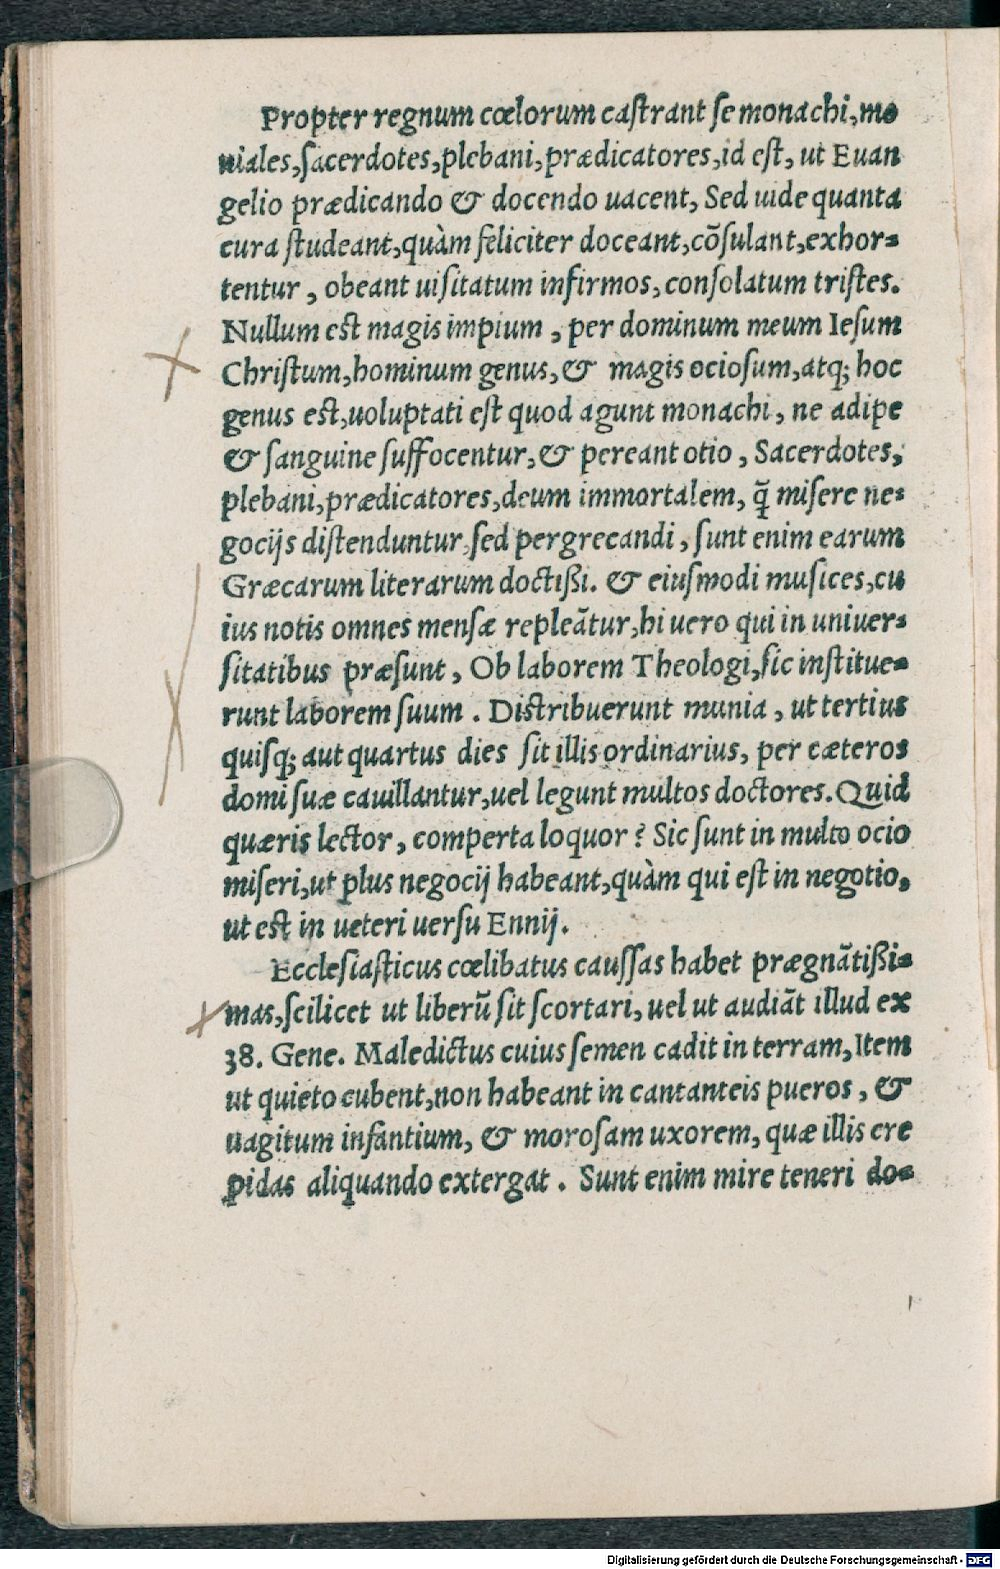 Propter regnum cœlorum castrant se monachi, mo
niales, sacerdotes, plebani, prædicatores, id est, ut Euan
gelio prædicando & docendo uacent, Sed uide quanta
cura studeant, quàm feliciter doceant, cõsulant, exhor-
tentur, obeant uisitatum infirmos, consolatum tristes.
Nullum est magis impium, per dominum meum Iesum
Christum, hominum genus, & magis ociosum, atq; hoc
genus est, uoluptati est quod agunt monachi, ne adipe
& sanguine suffocentur, & pereant otio, Sacerdotes,
plebani, prædicatores, deum immortalem, q̃ misere ne-
gocijs distenduntur, sed pergrecandi, sunt enim earum
Græcarum literarum doctißi. & eiusmodi musices, cu
ius notis omnes mensæ repleãtur, hi uero qui in uniuer-
sitatibus præsunt, Ob laborem Theologi, sic institue-
runt laborem suum. Distribuerunt munia, ut tertius
quisq; aut quartus dies sit illis ordinarius, per cæteros
domi suæ cauillantur, uel legunt multos doctores. Quid
quæris lector, comperta loquor? Sic sunt in multo ocio
miseri, ut plus negocij habeant, quàm qui est in negotio,
ut est in ueteri uersu Ennij.
Ecclesiasticus cœlibatus caussas habet prægnãtißi-
mas, scilicet ut liberũ sit scortari, uel ut audiãt illud ex
38. Gene. Maledictus cuius semen cadit in terram, Item
ut quieto cubent, non habeant in cantanteis pueros, &
uagitum infantium, & morosam uxorem, quæ illis cre
pidas aliquando extergat. Sunt enim mire teneri do-
Digitalisierung gefördert durch die Deutsche Forschungsgemeinschaft - DFG